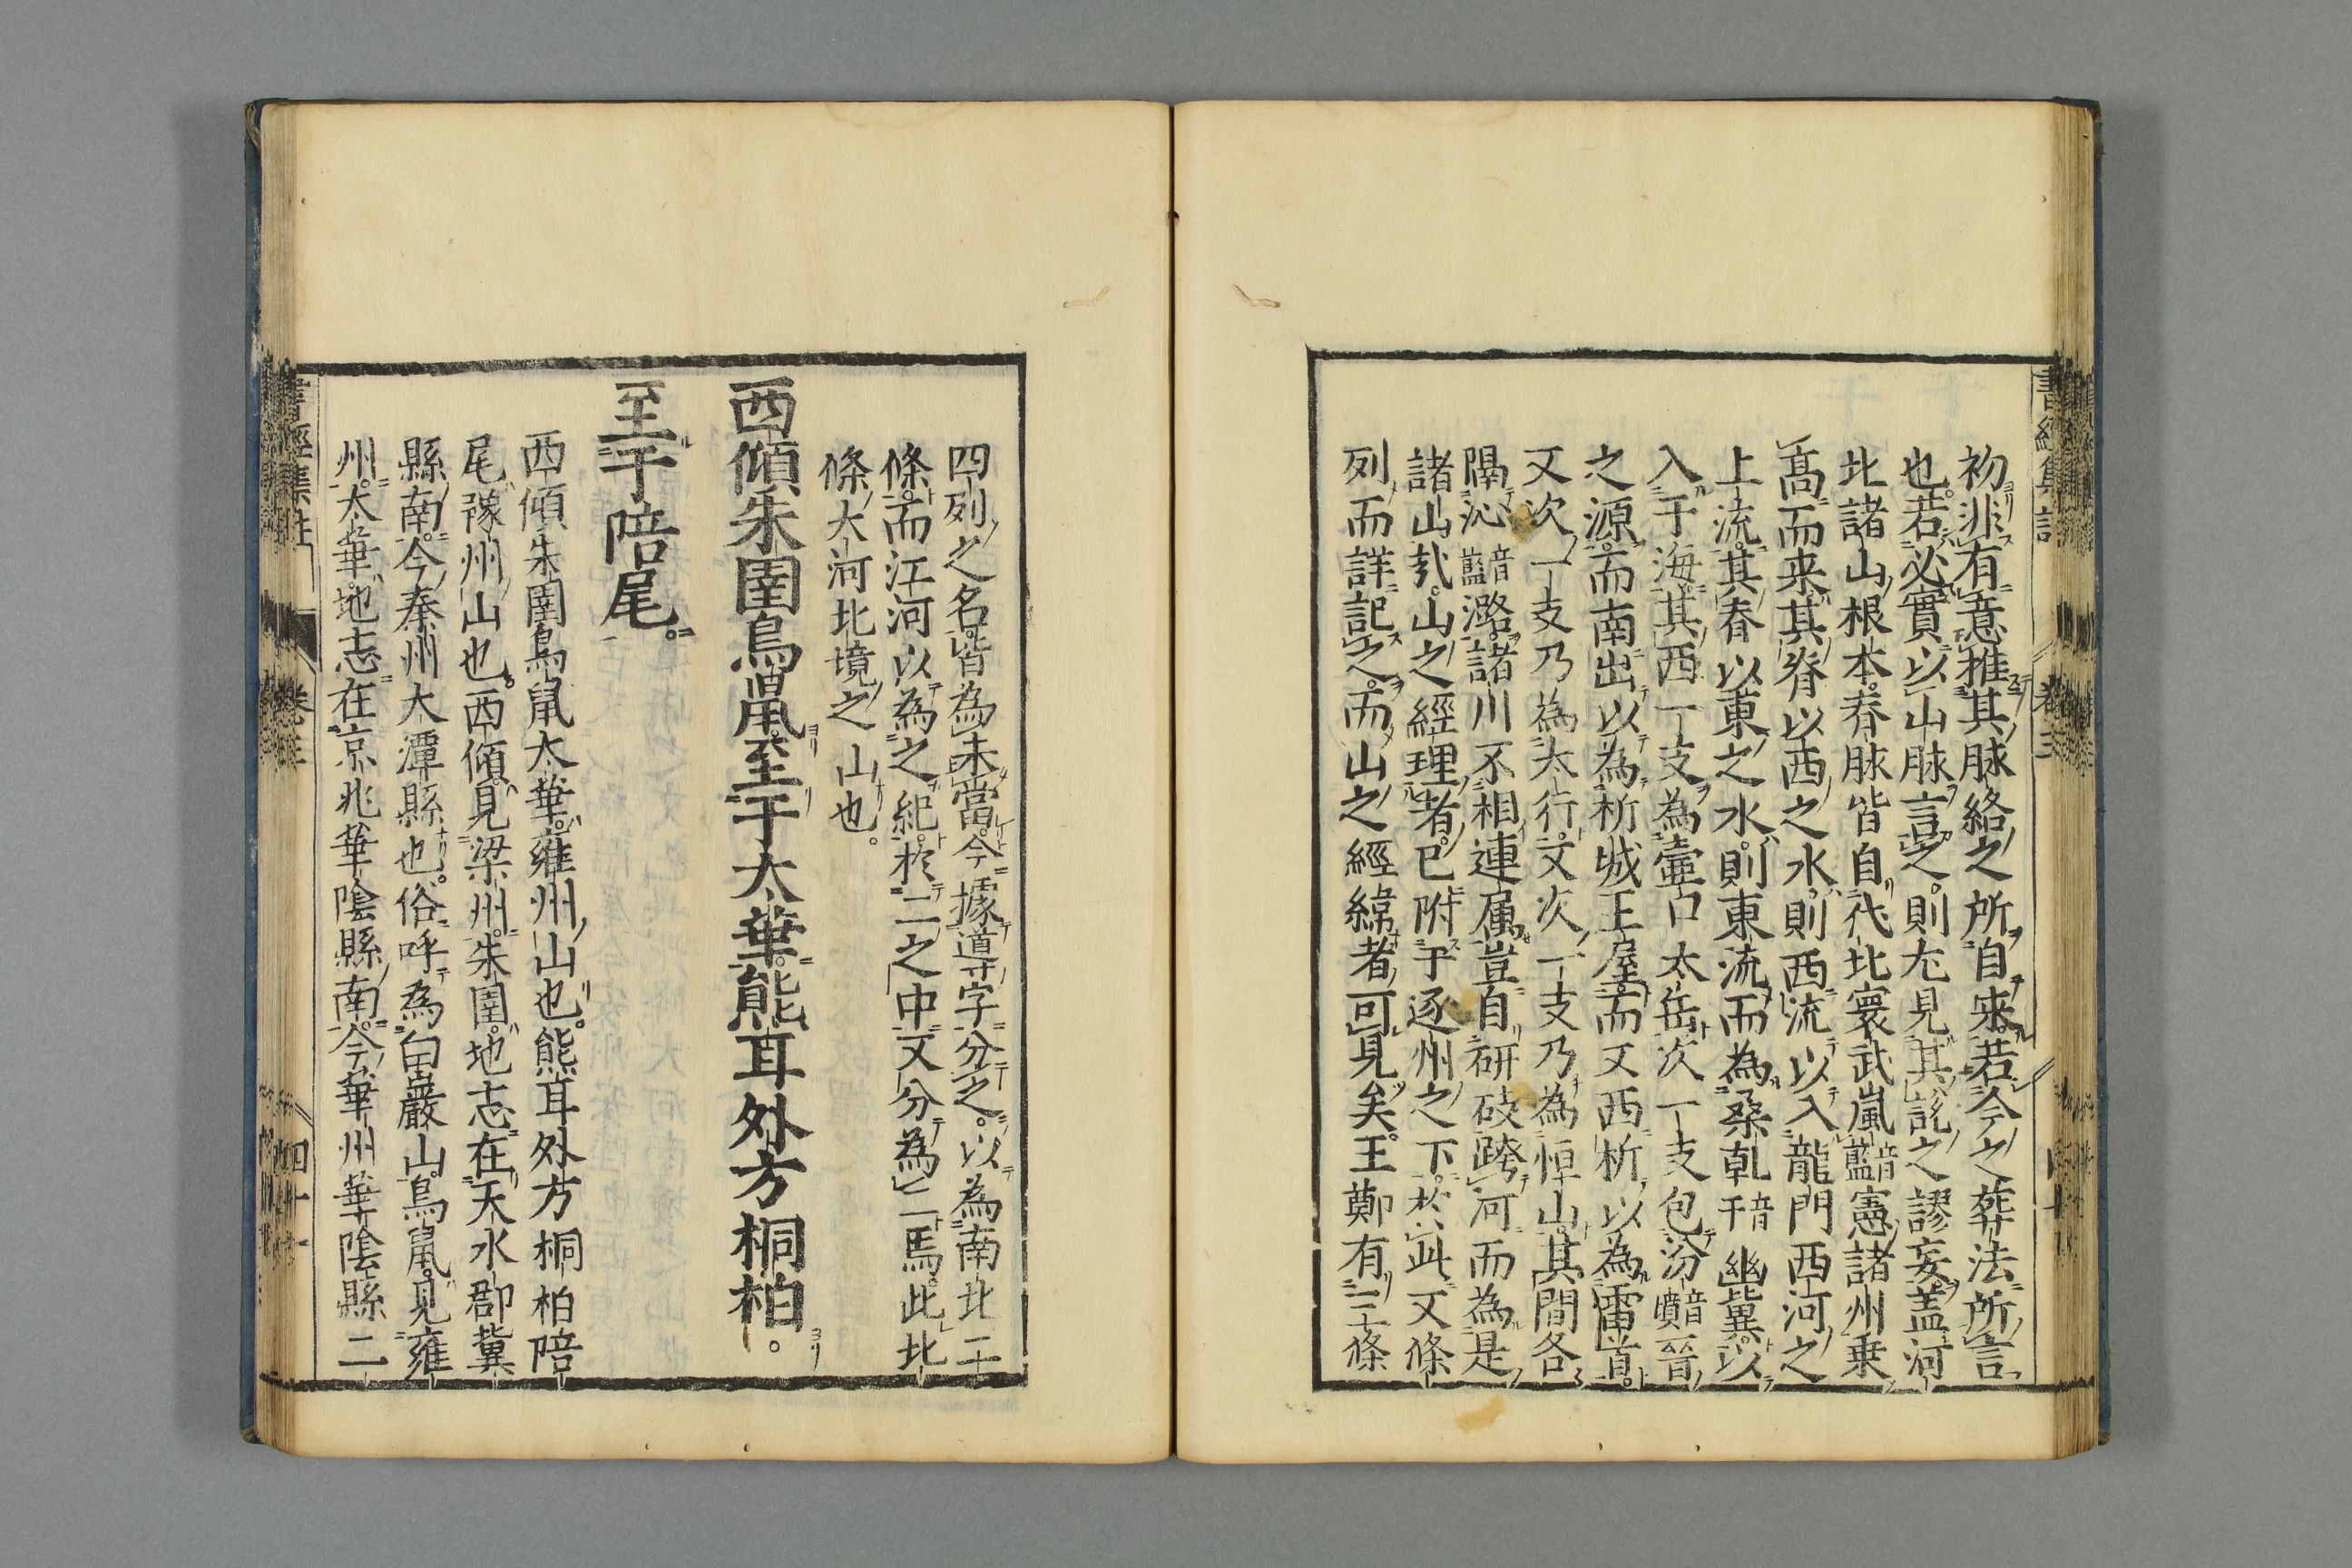 初非有意推其脉絡之所自来若今之葬法所言
也若必實以山脉言之則尤見其說之謬妄盖河
北諸山根本脊脉皆自代北寰武嵐音藍憲諸州乗
髙而来其脊以西之水則西流以入龍門西河之
上流其脊以東之水則東流而為桑乹音干幽冀以
入于海其西一支為壷口太岳次一支包汾音噴晉
之源而南出以為析城王屋而又西折以為雷首
又次一支乃為太行又次一支乃為恒山其間各
隔沁音藍潞諸川不相連属豈自岍岐跨河而為是
諸山㢤山之經理者已附于逐州之下於此又條
列而詳記之而山之經緯者可見矣王鄭有三條
四列之名皆為未當今據導字分之以為南北二
條而江河以為之紀於二之中又分為二焉此北
條大河北境之山也。
西傾朱圉鳥鼠至于太華熊耳外方桐柏。
至于陪尾。
西傾朱圉鳥鼠太華雍州山也熊耳外方桐柏陪
尾豫州山也西傾見梁州朱圉地志在天水郡冀
縣南今秦州大潭縣也俗呼為白巖山鳥鼠見雍
州太華地志在京兆華陰縣南今華州華陰縣二
書經集註 卷三 四十一